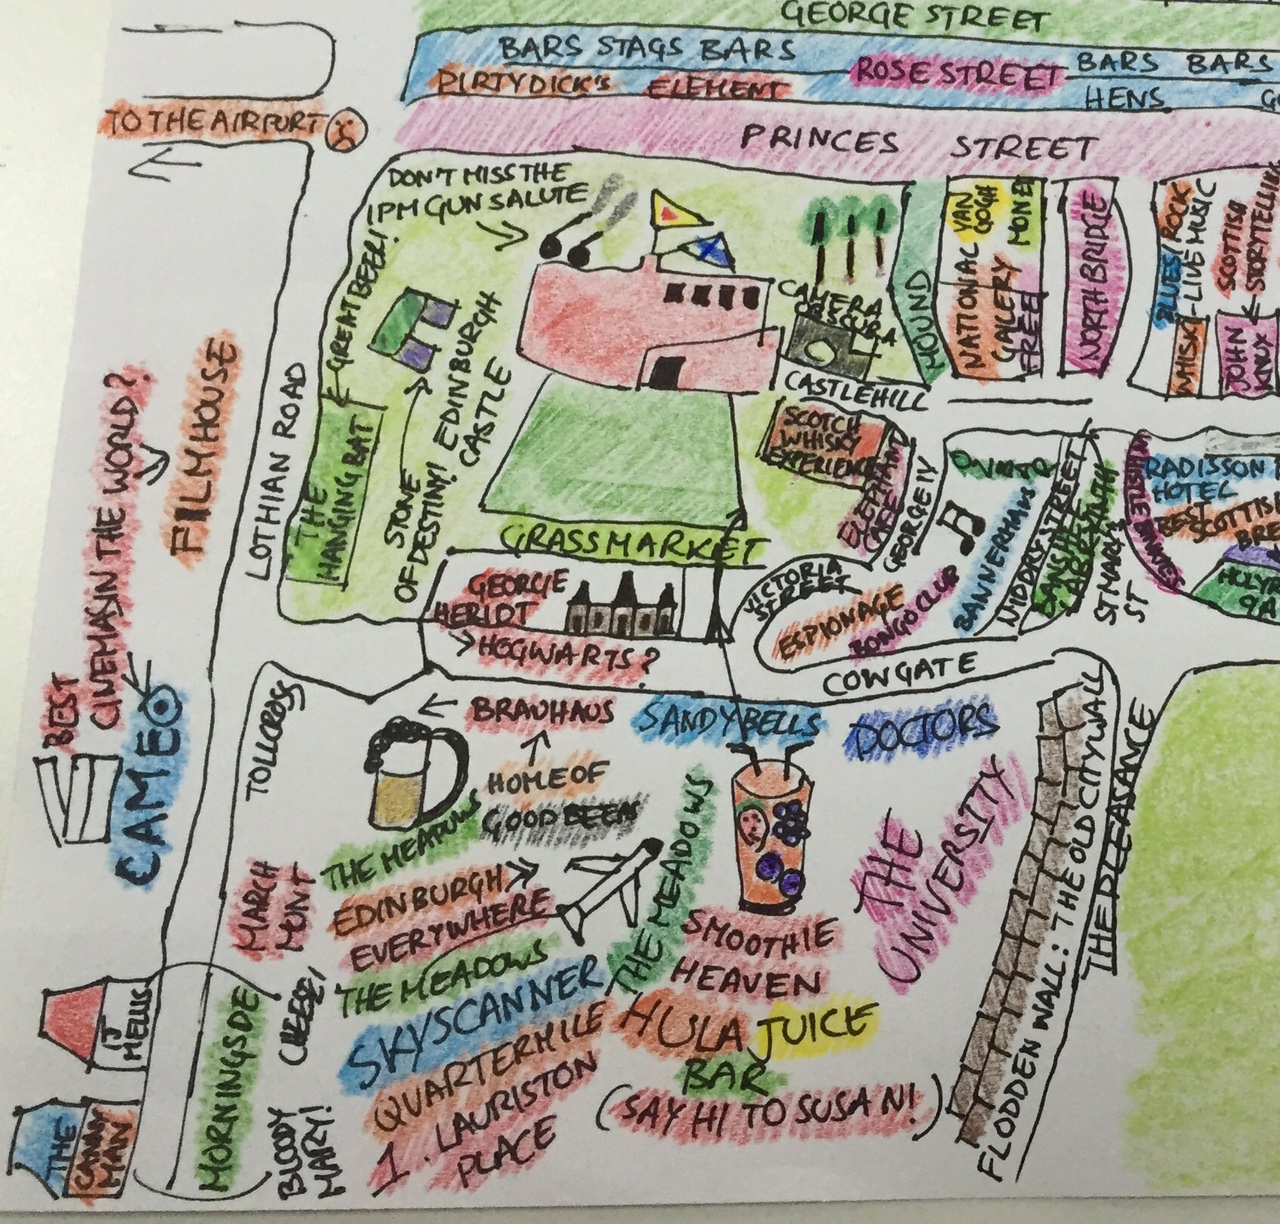 GEORGE STREET
BARS STAGS BARS
ROSE STREET
BARS BARS
DIRTYDICK'S
ELEMENT
HENS
PRINCES STREET
TO THE AIRPORT
DON'T MISS THE
1PM GUN SALUTE
GREAT BEER!
THE
HANGING BAT
STONE
OF DESTINY!
EDINBURGH
CASTLE
CAMERA
OBSCURA
CASTLEHILL
MOUND
NATIONAL
GALLERY
FREE
VAN
GOGH
MONET
NORTHBRIDGE
BLUES/ROCK
-LIVE MUSIC
SCOTTISH
STORYTELLIN
WHISKI
JOHN
KNOX
SCOTCH
WHISKY
EXPERIENCE
ELEPHANT
GEORGE IV
BANNERMANS
NIDDRY STREET
ST MARY'S
ST
RADISSON
HOTEL
BEST
SCOTTISH
BRE
HOLY
GRASSMARKET
GEORGE
HERIOT
HOGWARTS?
VICTORIA
STREET
ESPIONAGE
BONGO CLUB
COWGATE
LOTHIAN ROAD
FILMHOUSE
BEST
CINEMAS IN THE WORLD?
CAMEO
TOLLCROSS
BRAUHAUS
HOME OF
GOOD BEER
SANDYBELLS
DOCTORS
THE MEADOWS
EDINBURGH
EVERYWHERE
THE MEADOWS
THE MEADOWS
SMOOTHIE
HEAVEN
HULA JUICE
BAR
(SAY HI TO SUSAN!)
THE
UNIVERSITY
FLODDEN WALL: THE OLD CITY WALL
THE PLEASANCE
MARCH
MONT
SKYSCANNER
QUARTERMILE
1. LAURISTON
PLACE
IJ
MELLIS
CHEESE!
MORNINGSDE
THE
CANNY
MAN
BLOODY
MARY!